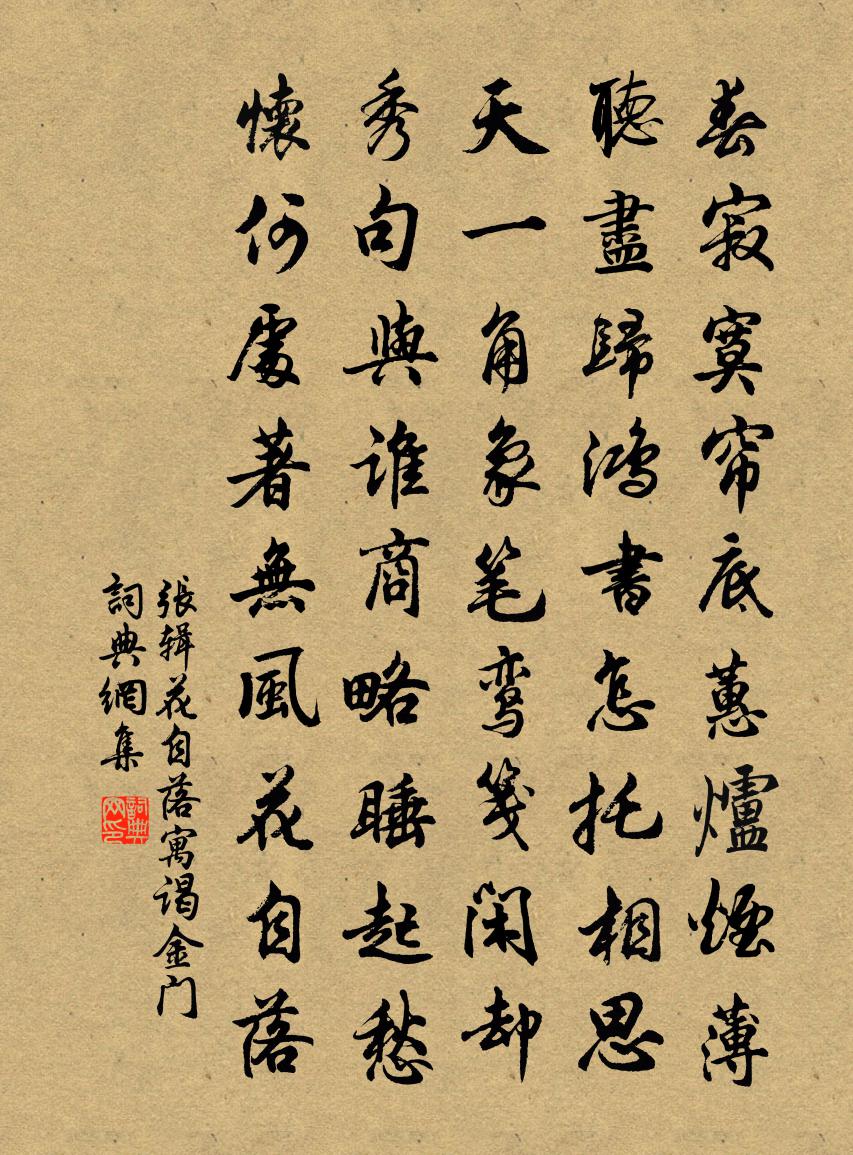 春寂寞帘底蕙爐煙薄
聽盡歸鴻書怎托相思
天一角象笔鸾箋閑却
秀句與誰商略睡起愁
懷何處著無風花自落
張辑花自落寓谒金门
詞典網集
詞典網印